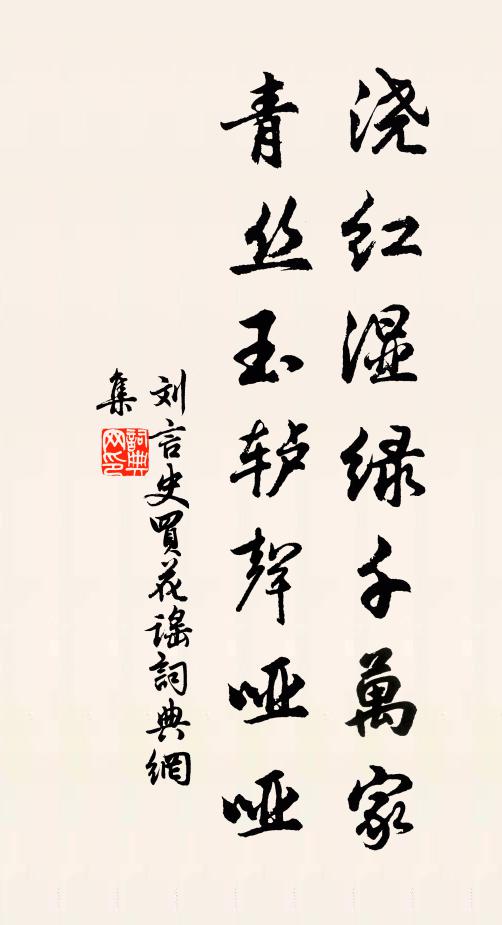 浇红湿绿千萬家
青丝玉轳聲哑哑
刘言史買花谣詞典網
集
詞典网印